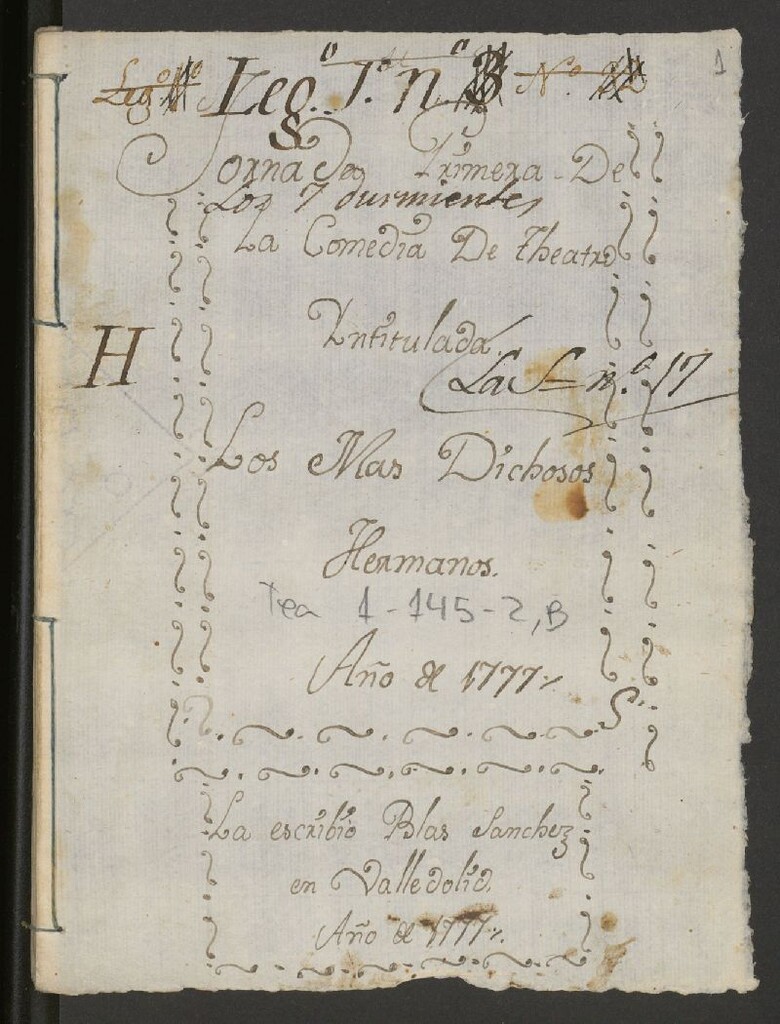 1
Leg.º 1.º n.º B N.º 22
Jornada Primera De
Los 7 durmientes
La Comedia De theatro
Yntitulada.
n.º 17
Los Mas Dichosos
Hermanos.
H
Tea 1-145-2, B
Año de 1777
La escribio Blas Sanchez
en Valledolid
Año de 1777